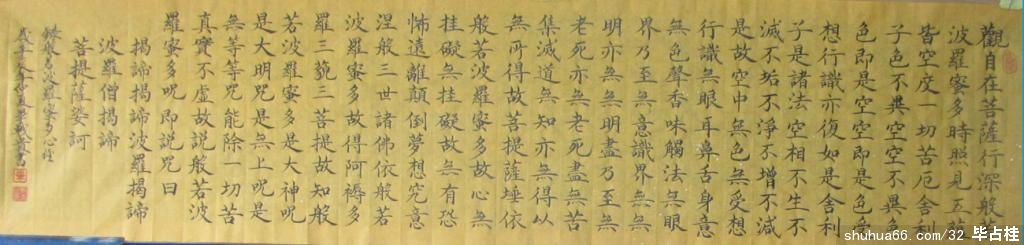 觀自在菩薩行深般若
波羅蜜多時照見五蘊
皆空度一切苦厄舍利
子色不異空空不異色
色即是空空即是色受
想行識亦復如是舍利
子是諸法空相不生不
滅不垢不淨不增不減
是故空中無色無受想
行識無眼耳鼻舌身意
無色聲香味觸法無眼
界乃至無意識界無無
明亦無無明盡乃至無
老死亦無老死盡無苦
集滅道無知亦無得以
無所得故菩提薩埵依
般若波羅蜜多故心無
挂礙無挂礙故無有恐
怖遠離顛倒夢想究意
涅般三世諸佛依般若
波羅蜜多故得阿褥多
羅三藐三菩提故知般
若波羅蜜多是大神呪
是大明咒是無上呪是
無等等咒能除一切苦
真實不虛故說般若波
羅蜜多呪即說咒曰
揭諦揭諦波羅揭諦
波羅僧揭諦
菩提薩婆訶
錄般若波羅蜜多心經
書
shuhua66.com/32 毕占桂